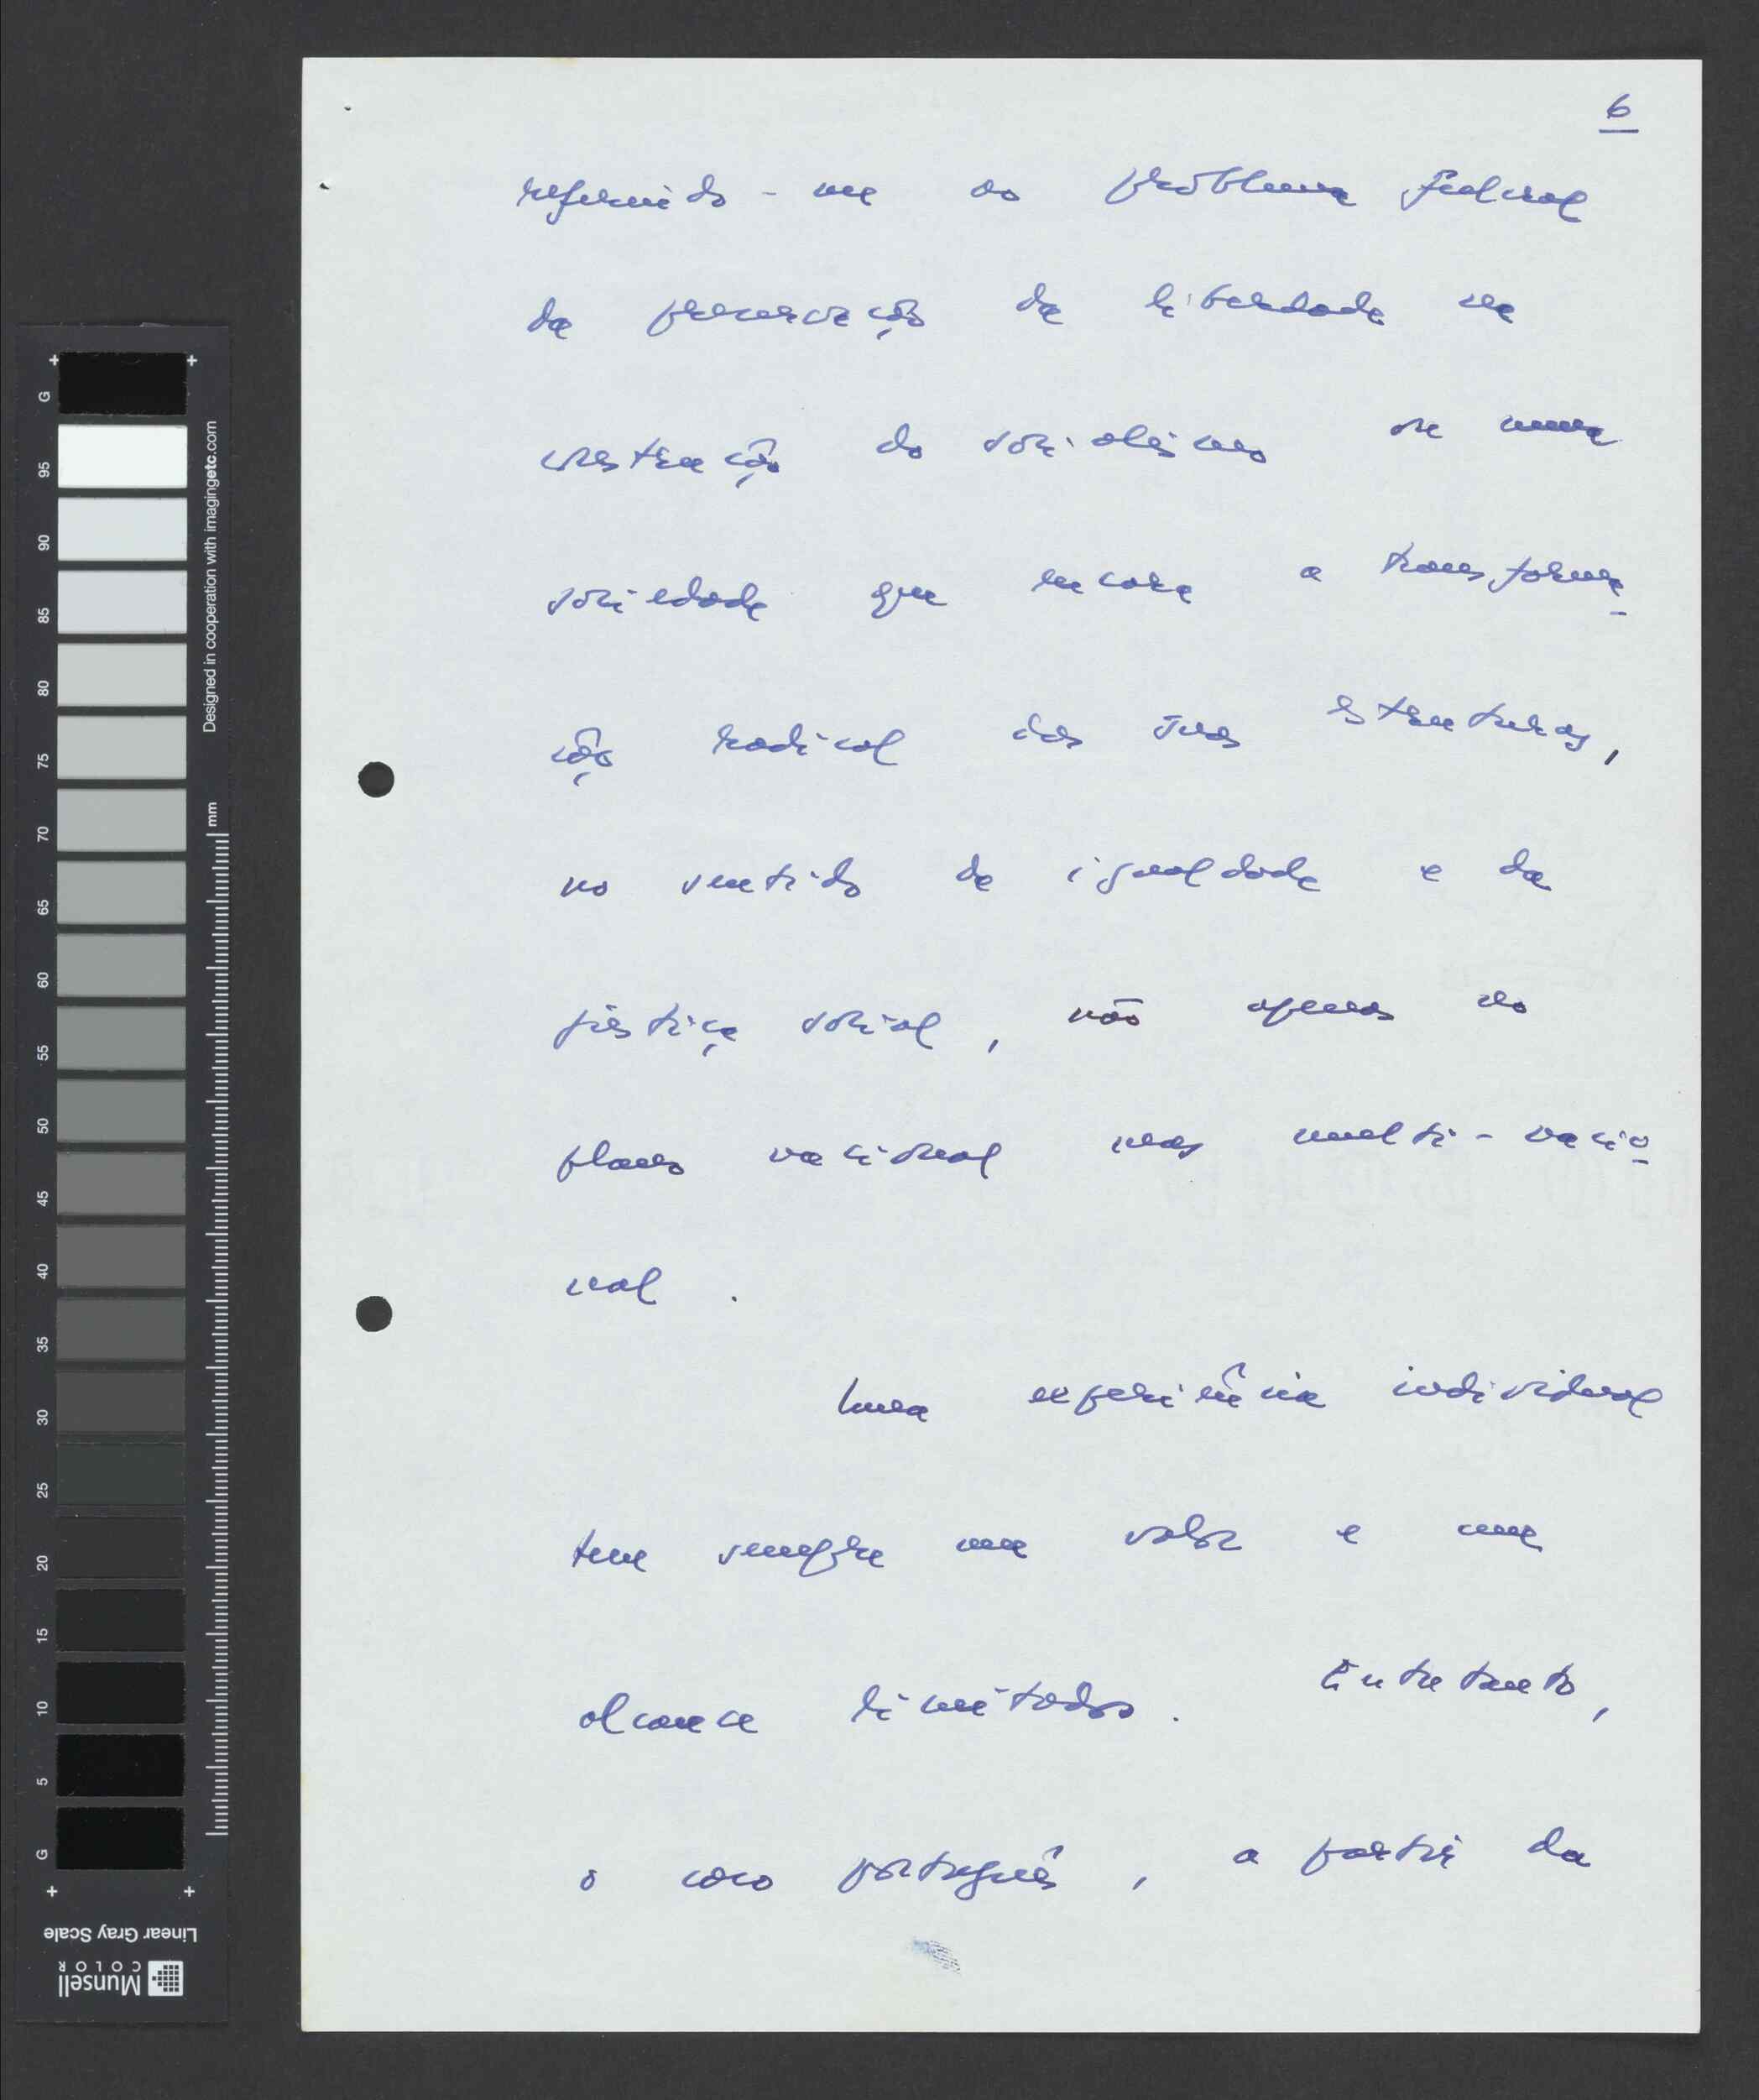 6
referindo-me ao problema
da preservação da liberdade na
construção do socialismo ou numa
sociedade que encara a transforma-
ção radical das suas estruturas,
no sentido da igualdade e da
justiça social, não apenas no
plano nacional mas multi-nacio-
nal.
Uma experiência individual
tem sempre um valor e um
alcance limitados. Entretanto,
o caso português, a partir da
G
95
90
85
80
75
70
65
60
55
50
45
40
35
30
25
20
15
10
5
G
Designed in cooperation with imagingetc.com
mm
Linear Gray Scale
Munsell
COLOR